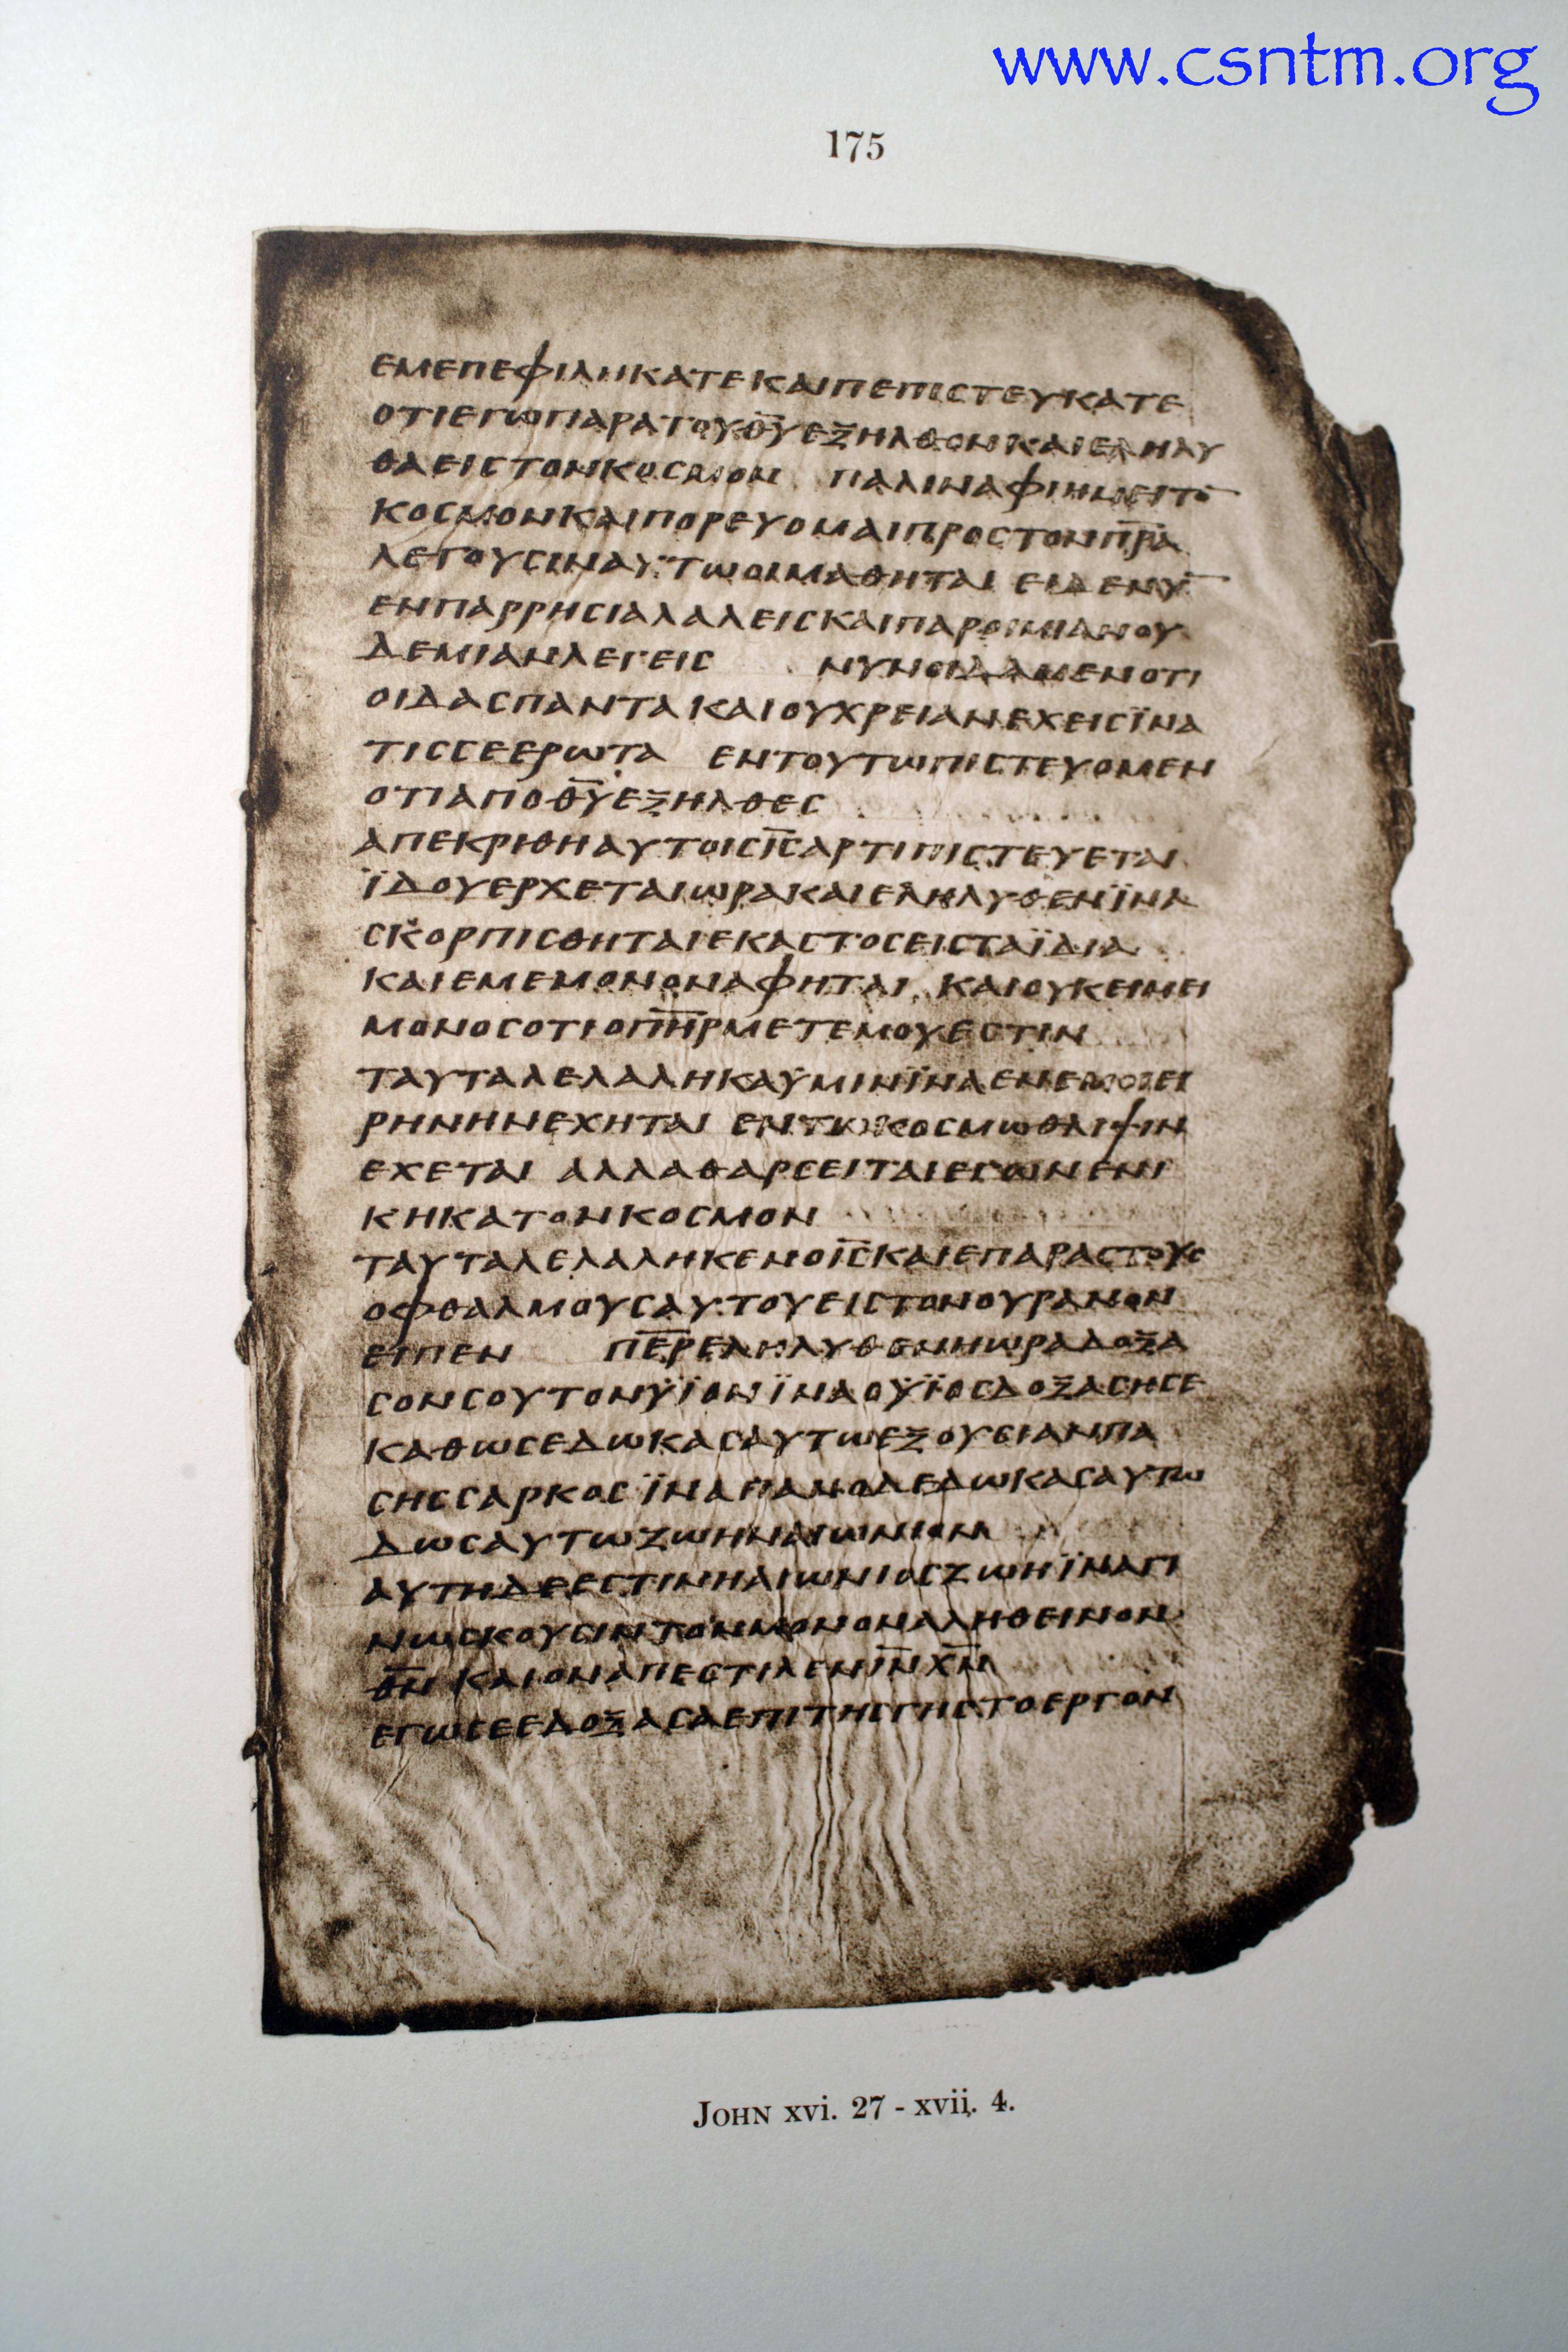 www.csntm.org
175
ΕΜΕΠΕΦΙΛΗΚΑΤΕΚΑΙΠΕΠΙΣΤΕΥΚΑΤΕ
ΟΤΙΕΓΩΠΑΡΑΤΟΥΘ̅Υ̅ΕΞΗΛΘΟΝΚΑΙΕΛΗΛΥ
ΘΑΕΙϹΤΟΝΚΟϹΜΟΝ ΠΑΛΙΝΑΦΙΗΜΕΙΤΟ̅
ΚΟϹΜΟΝΚΑΙΠΟΡΕΥΟΜΑΙΠΡΟϹΤΟΝΠ̅Ρ̅Α̅
ΛΕΓΟΥϹΙΝΑΥΤΩΟΙΜΑΘΗΤΑΙ ΕΙΔΕΝΥ̅
ΕΝΠΑΡΡΗϹΙΑΛΑΛΕΙϹΚΑΙΠΑΡΟΙΜΙΑΝΟΥ
ΔΕΜΙΑΝΛΕΓΕΙϹ ΝΥΝΟΙΔΑΜΕΝΟΤΙ
ΟΙΔΑϹΠΑΝΤΑΚΑΙΟΥΧΡΕΙΑΝΕΧΕΙϹΪΝΑ
ΤΙϹϹΕΕΡΩΤΑ ΕΝΤΟΥΤΩΠΙϹΤΕΥΟΜΕΝ
ΟΤΙΑΠΟΘ̅Υ̅ΕΞΗΛΘΕϹ
ΑΠΕΚΡΙΘΗΑΥΤΟΙϹΙ̅Ϲ̅ΑΡΤΙΠΙϹΤΕΥΕΤΑΙ
ΪΔΟΥΕΡΧΕΤΑΙΩΡΑΚΑΙΕΛΗΛΥΘΕΝΪΝΑ
ϹΚΟΡΠΙϹΘΗΤΑΙΕΚΑϹΤΟϹΕΙϹΤΑΪΔΙΑ
ΚΑΙΕΜΕΜΟΝΟΝΑΦΗΤΑΙ ΚΑΙΟΥΚΕΙΜΕΙ
ΜΟΝΟϹΟΤΙΟΠ̅Η̅Ρ̅ΜΕΤΕΜΟΥΕϹΤΙΝ
ΤΑΥΤΑΛΕΛΑΛΗΚΑΫΜΙΝΪΝΑΕΝΕΜΟΙΕΙ
ΡΗΝΗΝΕΧΗΤΑΙ ΕΝΤΩΚΟϹΜΩΘΛΙΨΙΝ
ΕΧΕΤΑΙ ΑΛΛΑΘΑΡϹΕΙΤΑΙΕΓΩΝΕΝΙ
ΚΗΚΑΤΟΝΚΟϹΜΟΝ
ΤΑΥΤΑΛΕΛΑΛΗΚΕΝΟΙ̅Ϲ̅ΚΑΙΕΠΑΡΑϹΤΟΥϹ
ΟΦΘΑΛΜΟΥϹΑΥΤΟΥΕΙϹΤΟΝΟΥΡΑΝΟΝ
ΕΙΠΕΝ Π̅Ε̅Ρ̅ΕΛΗΛΥΘΕΝΗΩΡΑΔΟΞΑ
ϹΟΝϹΟΥΤΟΝΫΪΟΝΪΝΑΟΫΪΟϹΔΟΞΑϹΗϹΕ
ΚΑΘΩϹΕΔΩΚΑϹΑΥΤΩΕΞΟΥϹΙΑΝΠΑ
ϹΗϹϹΑΡΚΟϹΪΝΑΠΑΝΟΔΕΔΩΚΑϹΑΥΤΩ
ΔΩϹΑΥΤΩΖΩΗΝΑΙΩΝΙΟΝ
ΑΥΤΗΔΕΕϹΤΙΝΗΑΙΩΝΙΟϹΖΩΗΪΝΑΓΙ
ΝΩϹΚΟΥϹΙΝΤΟΝΜΟΝΟΝΑΛΗΘΕΙΝΟΝ
Θ̅Ν̅ ΚΑΙΟΝΑΠΕϹΤΙΛΕΝΙ̅Ν̅Χ̅Ν̅
ΕΓΩϹΕΕΔΟΞΑϹΑΕΠΙΤΗϹΓΗϹΤΟΕΡΓΟΝ
JOHN xvi. 27 - xvii. 4.